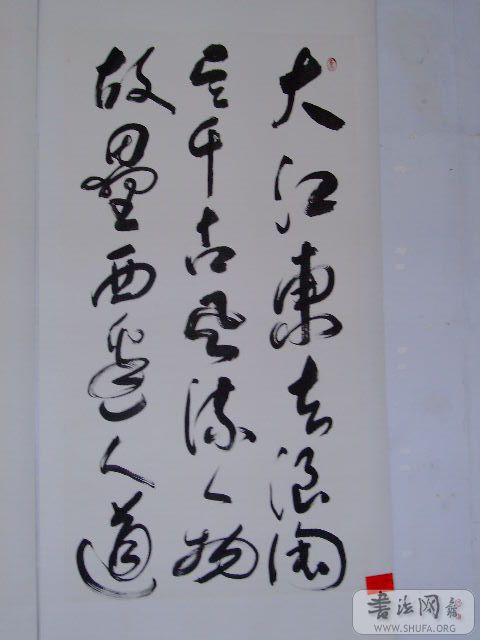 大江東去浪淘
尽千古風流人物
故壘西邊人道
書法网
WWW.SHUFA.ORG